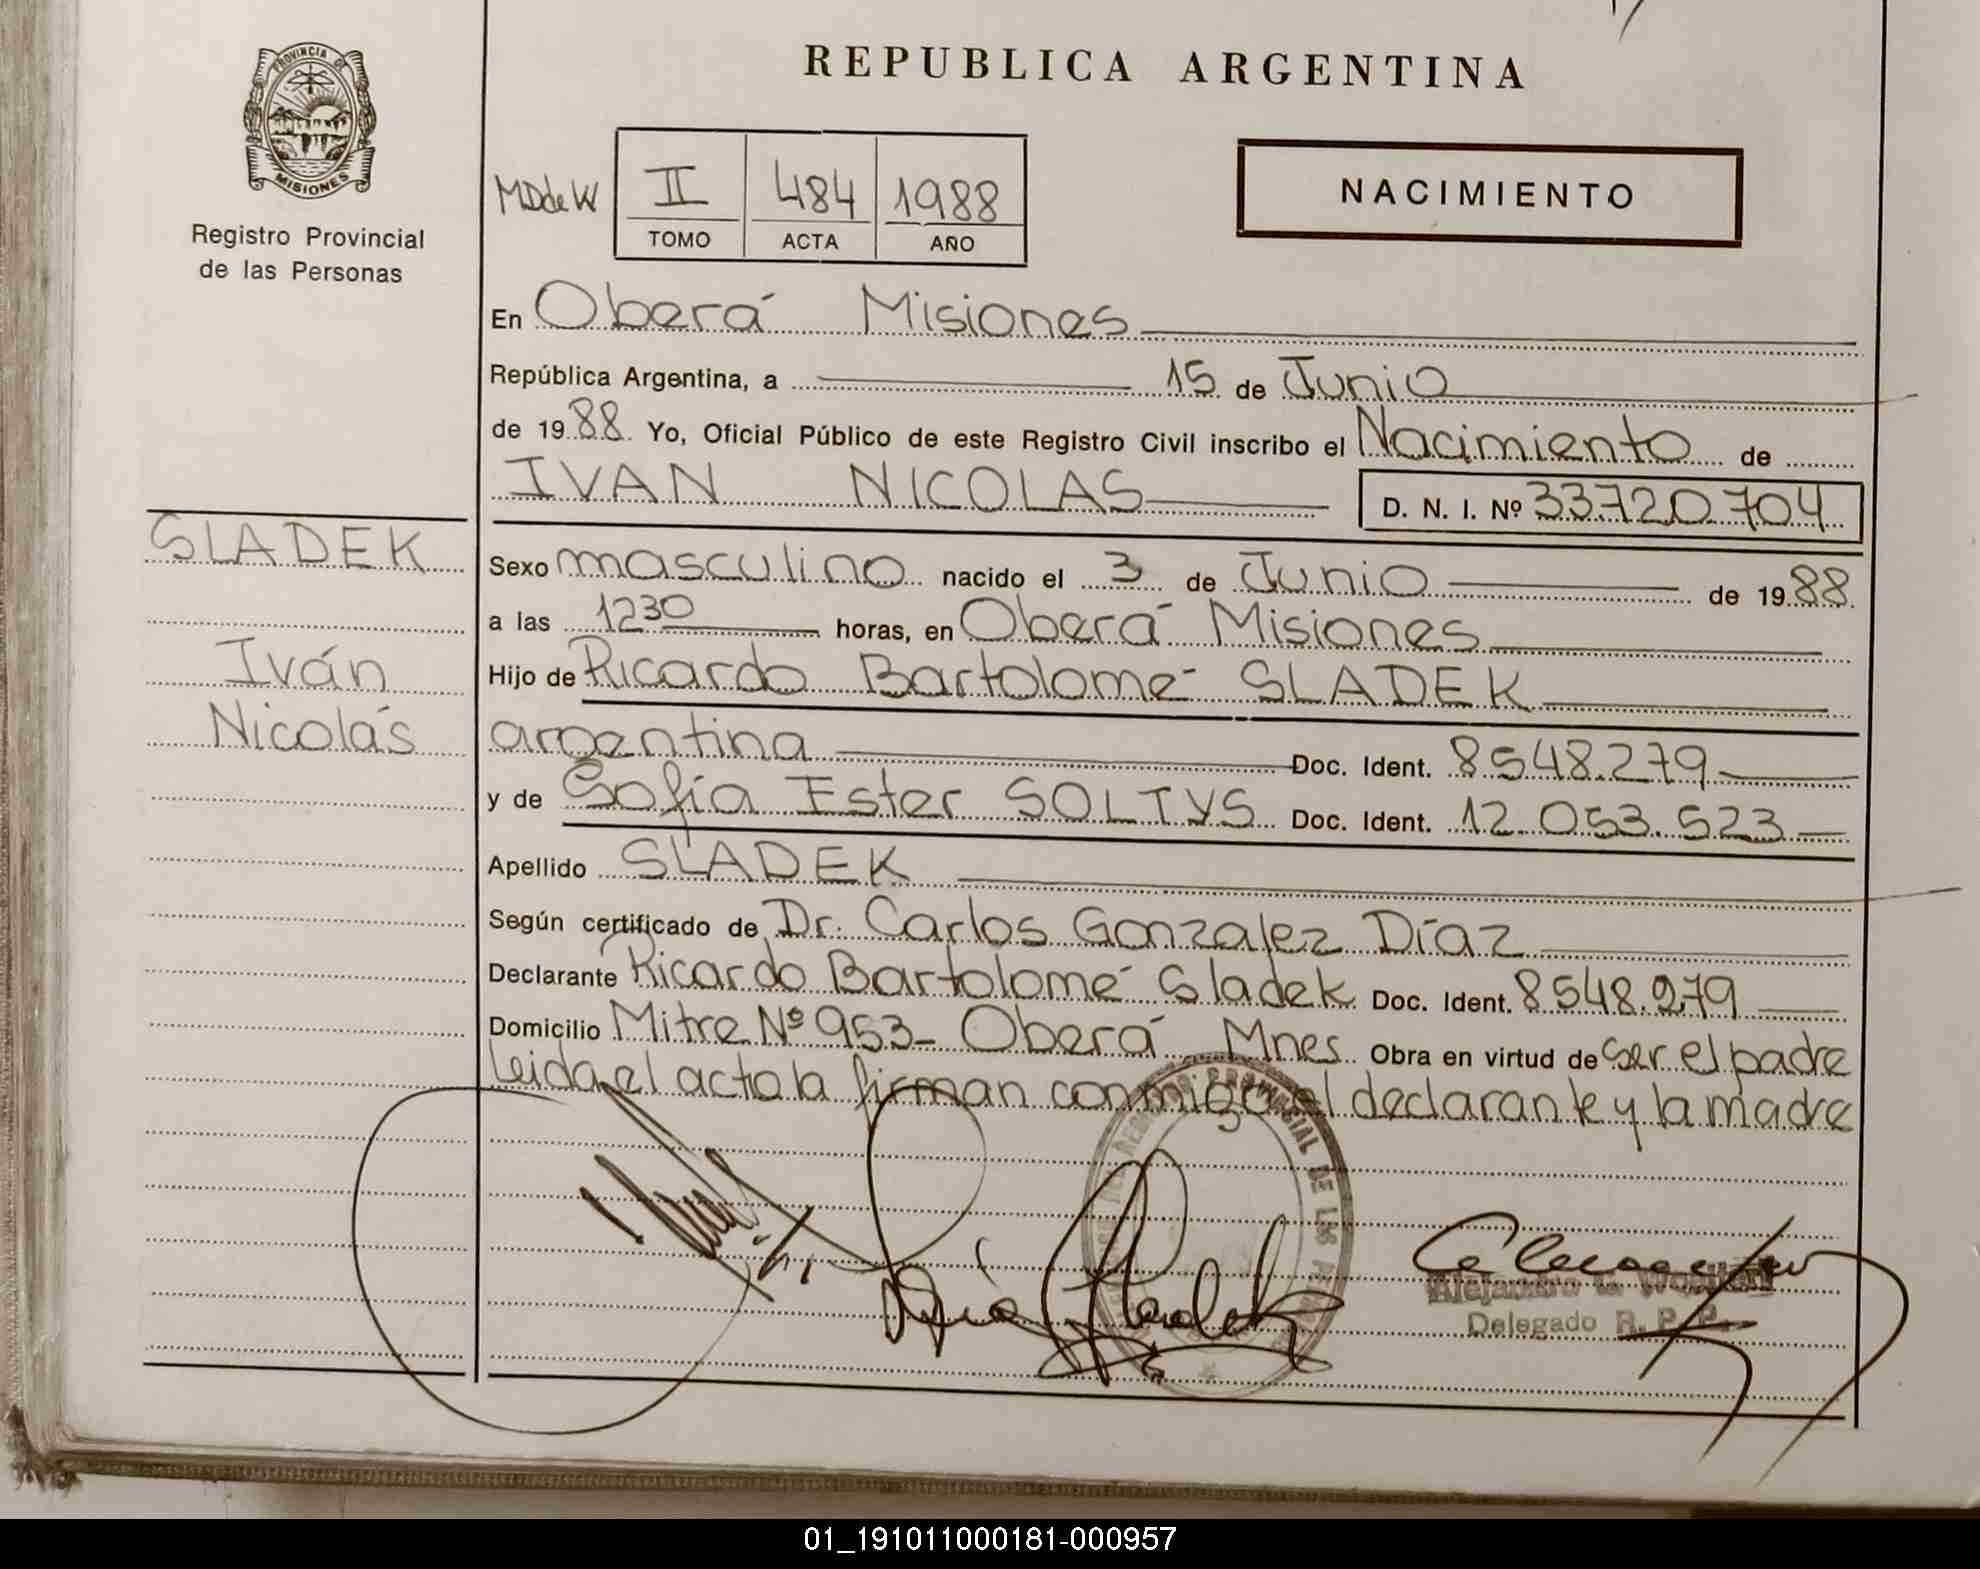 REPUBLICA ARGENTINA
PROVINCIA DE
MISIONES
Registro Provincial
de las Personas
MDdeW II 484 1988
TOMO ACTA AÑO
NACIMIENTO
En Oberá Misiones
República Argentina, a 15 de Junio
de 1988 Yo, Oficial Público de este Registro Civil inscribo el Nacimiento de
IVAN NICOLAS D. N. I. Nº 33.720.704
SLADEK
Iván
Nicolás
Sexo masculino nacido el 3 de Junio de 1988
a las 1230 horas, en Oberá Misiones
Hijo de Ricardo Bartolomé SLADEK
argentina Doc. Ident. 8548.279
y de Sofía Ester SOLTYS Doc. Ident. 12.053.523
Apellido SLADEK
Según certificado de Dr. Carlos Gonzalez Díaz
Declarante Ricardo Bartolomé Sladek Doc. Ident. 8548.279
Domicilio Mitre Nº 953- Oberá Mnes Obra en virtud de ser el padre
Leida el acta la firman conmigo el declarante y la madre
PROVINCIAL DE LAS
Delegado R. P. P.
01_191011000181-000957